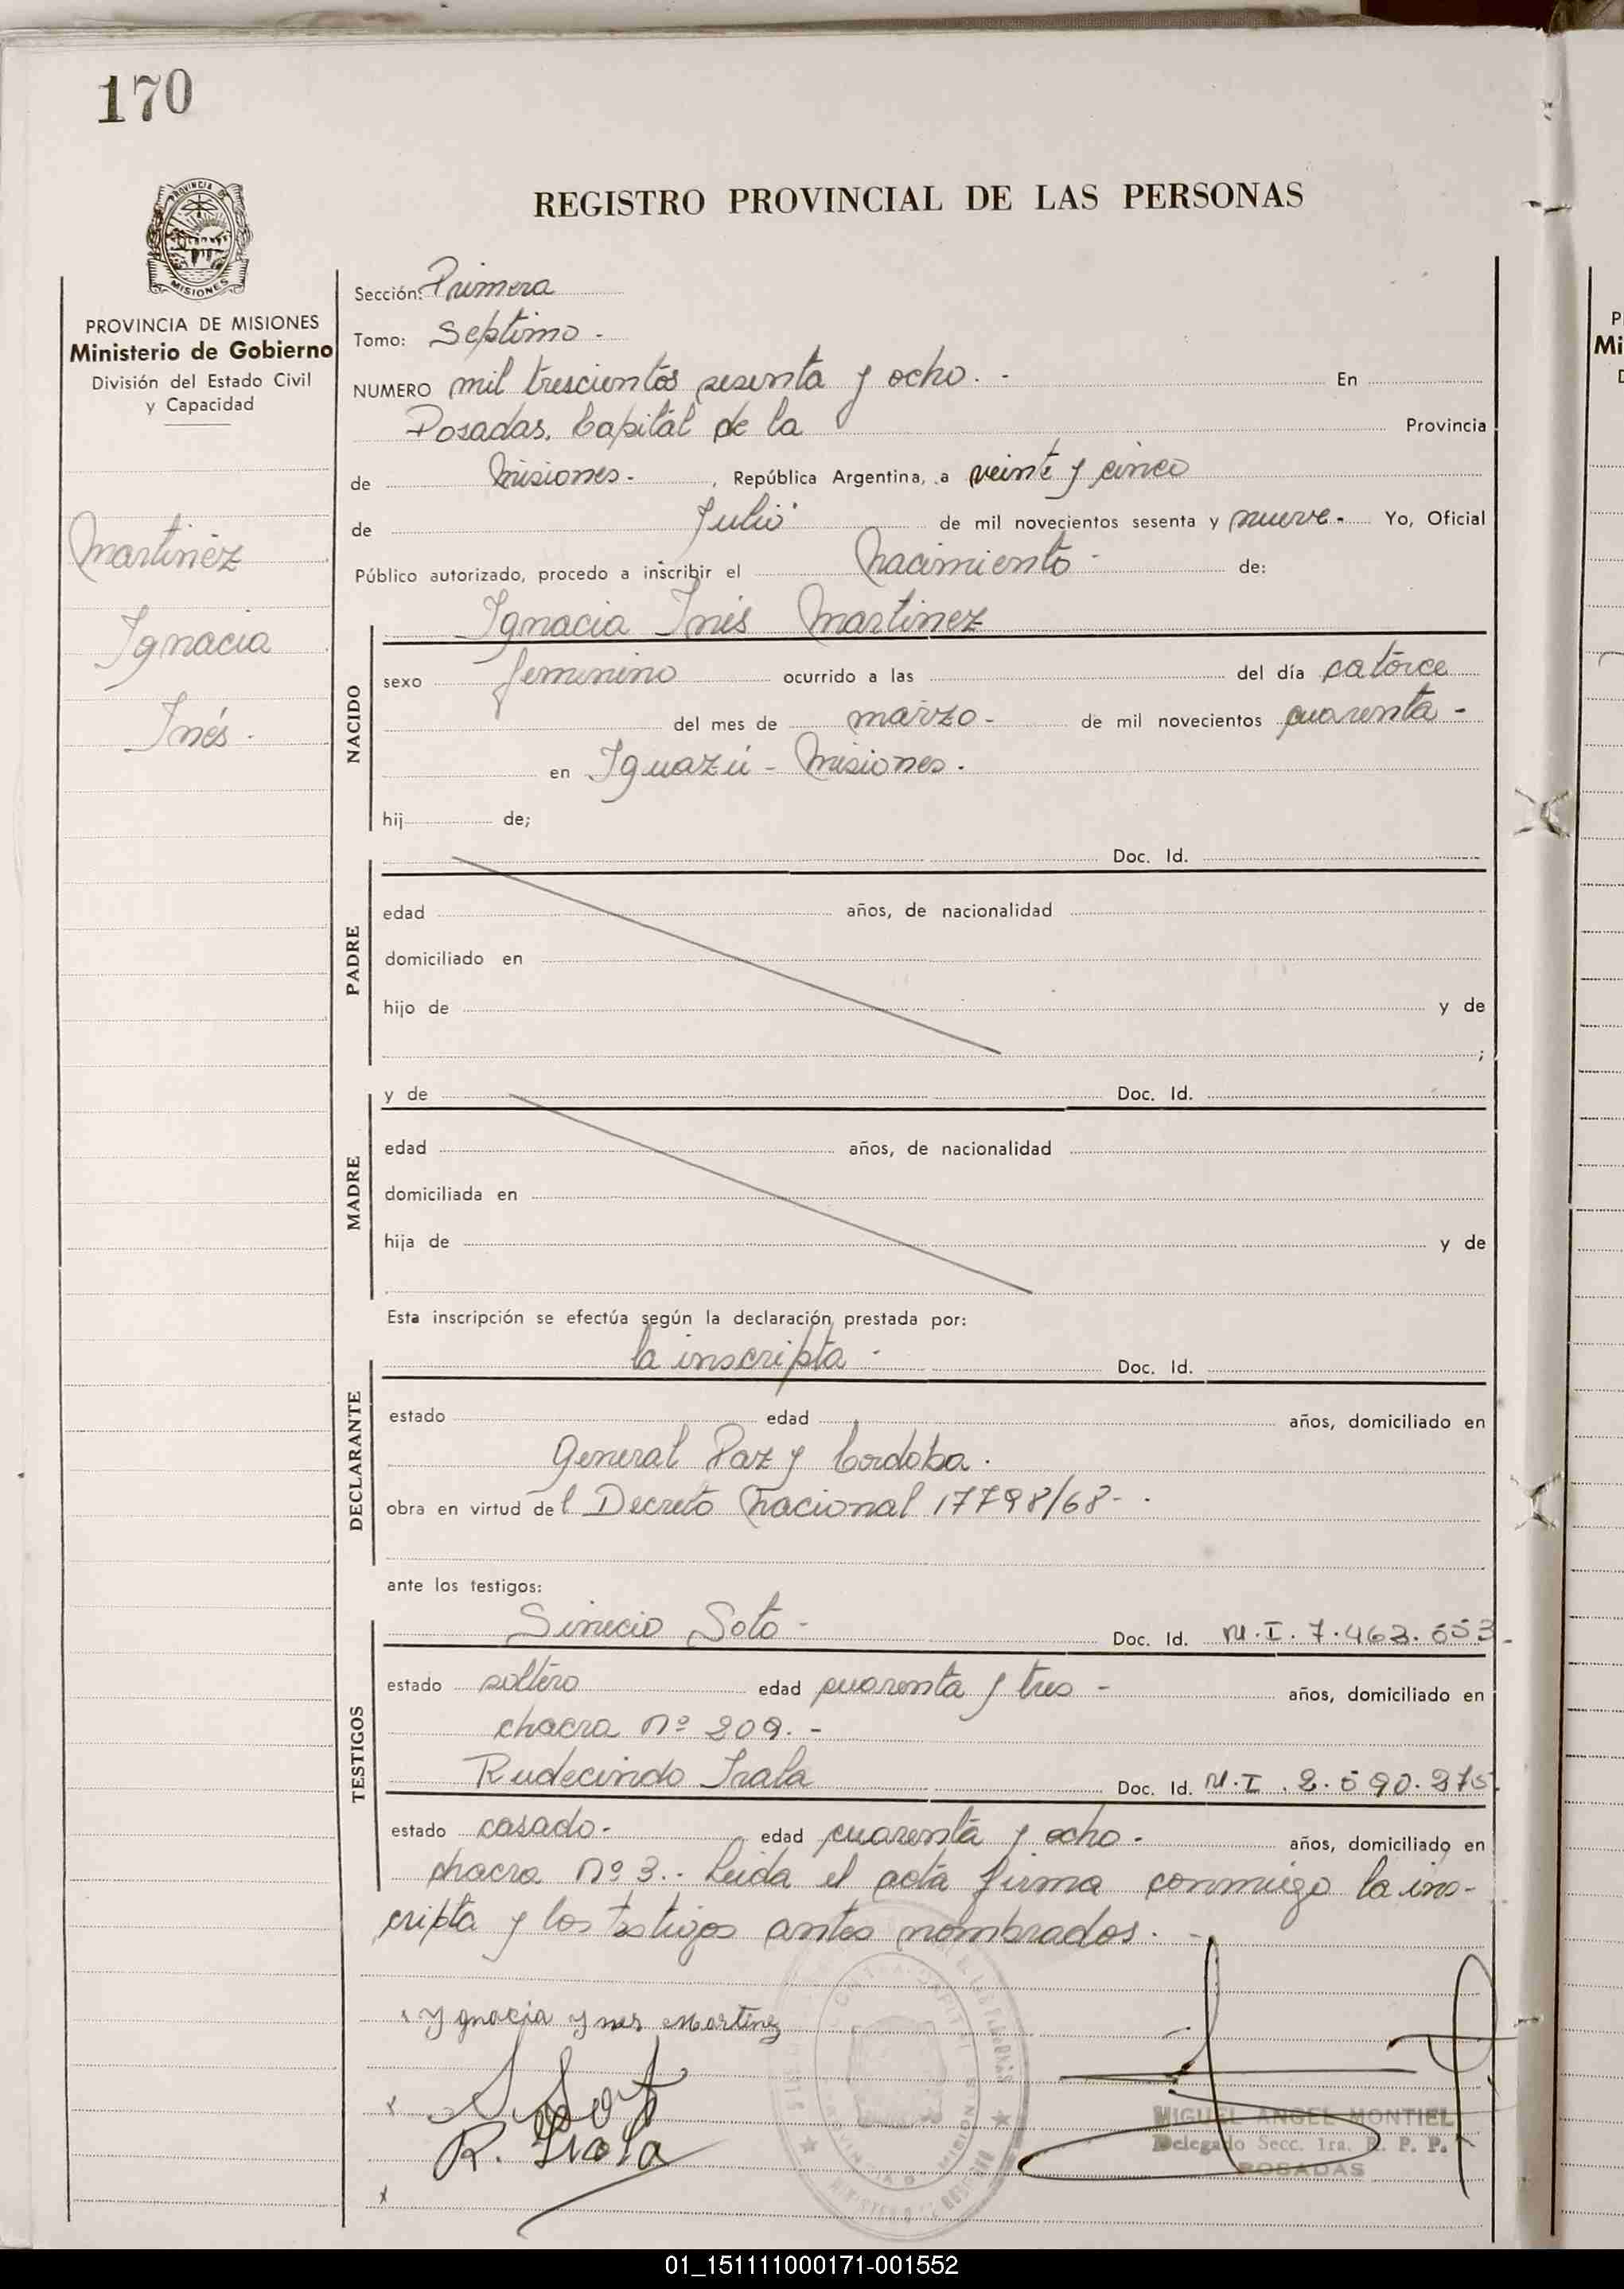 170
REGISTRO PROVINCIAL DE LAS PERSONAS
PROVINCIA DE MISIONES
Ministerio de Gobierno
División del Estado Civil
y Capacidad
Martinez
Ignacia
Inés.
Sección: Primera
Tomo: Septimo -
NUMERO mil trescientos sesenta y ocho. - En
Posadas. Capital de la Provincia
de Misiones - , República Argentina, a veinte y cinco
de Julio de mil novecientos sesenta y nueve - Yo, Oficial
Público autorizado, procedo a inscribir el Nacimiento - de:
NACIDO
Ignacia Inés Martinez
sexo femenino ocurrido a las del día catorce
del mes de marzo - de mil novecientos cuarenta -
en Iguazú - Misiones.
hij de;
PADRE
Doc. Id.
edad años, de nacionalidad
domiciliado en
hijo de y de
;
MADRE
y de Doc. Id.
edad años, de nacionalidad
domiciliada en
hija de y de
Esta inscripción se efectúa según la declaración prestada por:
DECLARANTE
la inscripta - Doc. Id.
estado edad años, domiciliado en
General Paz y Cordoba.
obra en virtud del Decreto Nacional 17798/68-.
ante los testigos:
TESTIGOS
Sinecio Soto - Doc. Id. M.I. 7.463.653-
estado soltero edad cuarenta y tres - años, domiciliado en
chacra nº 209. -
Rudecindo Irala Doc. Id. M.I. 2.590.275.
estado casado. edad cuarenta y ocho. años, domiciliado en
chacra nº 3. - Leida el acta firma conmigo la ins-
cripta y los testigos antes nombrados. -
x Ygnacia Ynes Martinez
x S. Soto
R. Irala
x
MIGUEL ANGEL MONTIEL
Delegado Secc. 1ra. R. P. P.
POSADAS
01_151111000171-001552